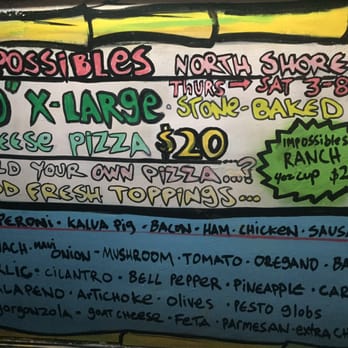 POSSIBLES NORTH SHORE
THURS → SAT 3-8
0" X-LARGE · STONE-BAKED
EESE PIZZA $20
LD YOUR OWN PIZZA...?
DD FRESH TOPPINGS...
IMPOSSIBLES
RANCH
4oz CUP $2
PERONI · KALUA PIG · BACON · HAM · CHICKEN · SAUSA
NACH · MAUI ONION · MUSHROOM · TOMATO · OREGANO · BA
RLIC · CILANTRO · BELL PEPPER · PINEAPPLE · CAR
ALAPENO · ARTICHOKE · OLIVES · PESTO GLOBS
GORGONZOLA · GOAT CHEESE · FETA · PARMESAN · EXTRA CH